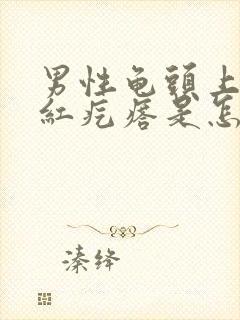 男性龟頭上
紅疙瘩是怎
溱绛